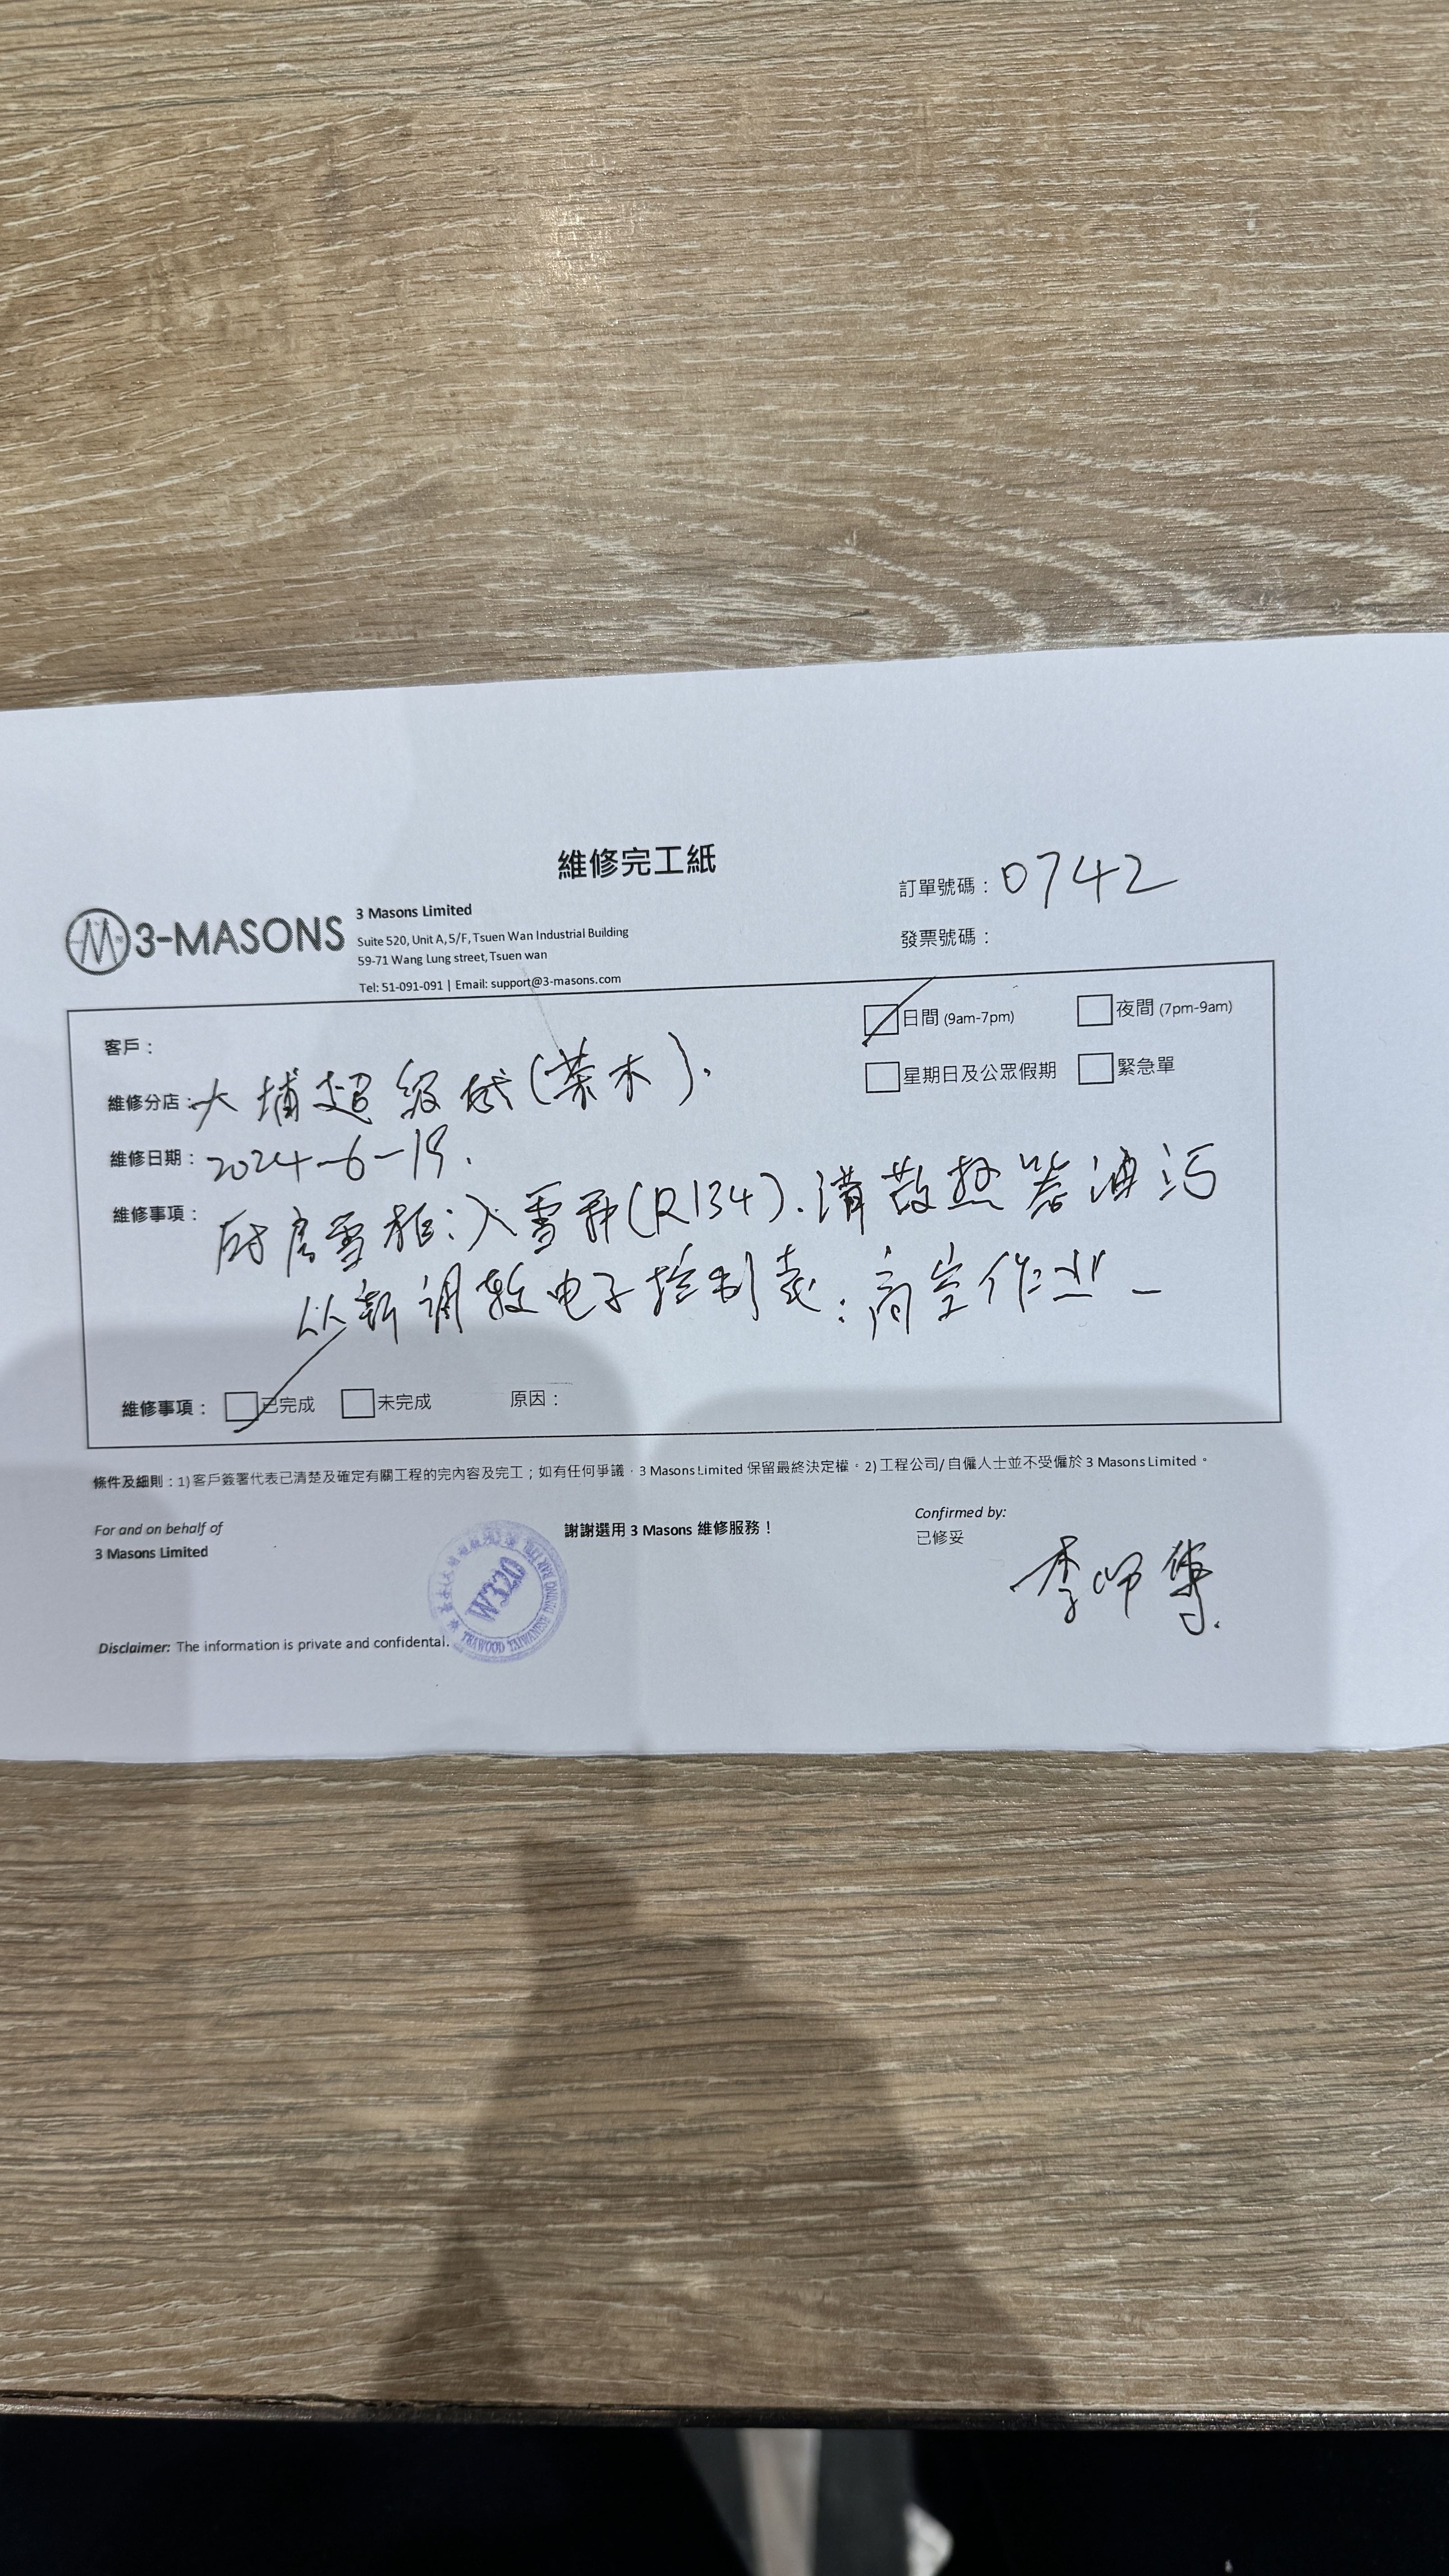 維修完工紙
訂單號碼：0742
發票號碼：
3-MASONS
3 Masons Limited
Suite 520, Unit A, 5/F, Tsuen Wan Industrial Building
59-71 Wang Lung street, Tsuen wan
Tel: 51-091-091 | Email: support@3-masons.com
客戶：
日間 (9am-7pm)
夜間 (7pm-9am)
星期日及公眾假期
緊急單
維修分店：大埔超級城(茶木).
維修日期：2024-6-19.
維修事項：厨房雪柜:入雪種(R134).清散热器油污
从新调較电子控制表:高空作业
維修事項：已完成 未完成 原因：
條件及細則：1) 客戶簽署代表已清楚及確定有關工程的完內容及完工；如有任何爭議，3 Masons Limited 保留最終決定權。2) 工程公司/ 自僱人士並不受僱於 3 Masons Limited。
For and on behalf of
3 Masons Limited
謝謝選用 3 Masons 維修服務！
Confirmed by:
已修妥
李师傅.
W320
TEAWOOD TAIWANESE DINING BAR LTD.
Disclaimer: The information is private and confidental.